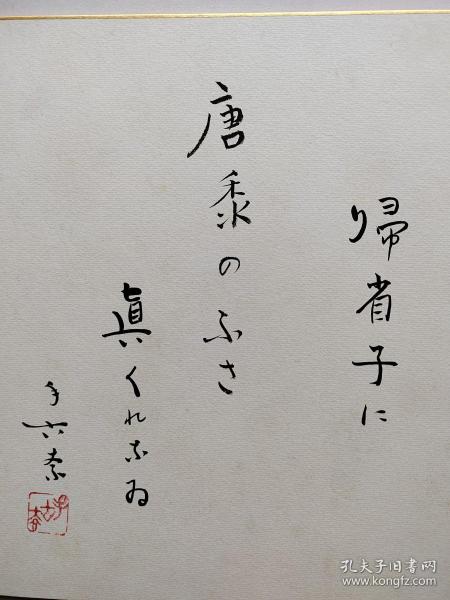 帰省子に
唐黍のふさ
眞くれなゐ
手古奈
手古奈
孔夫子旧书网
www.kongfz.com